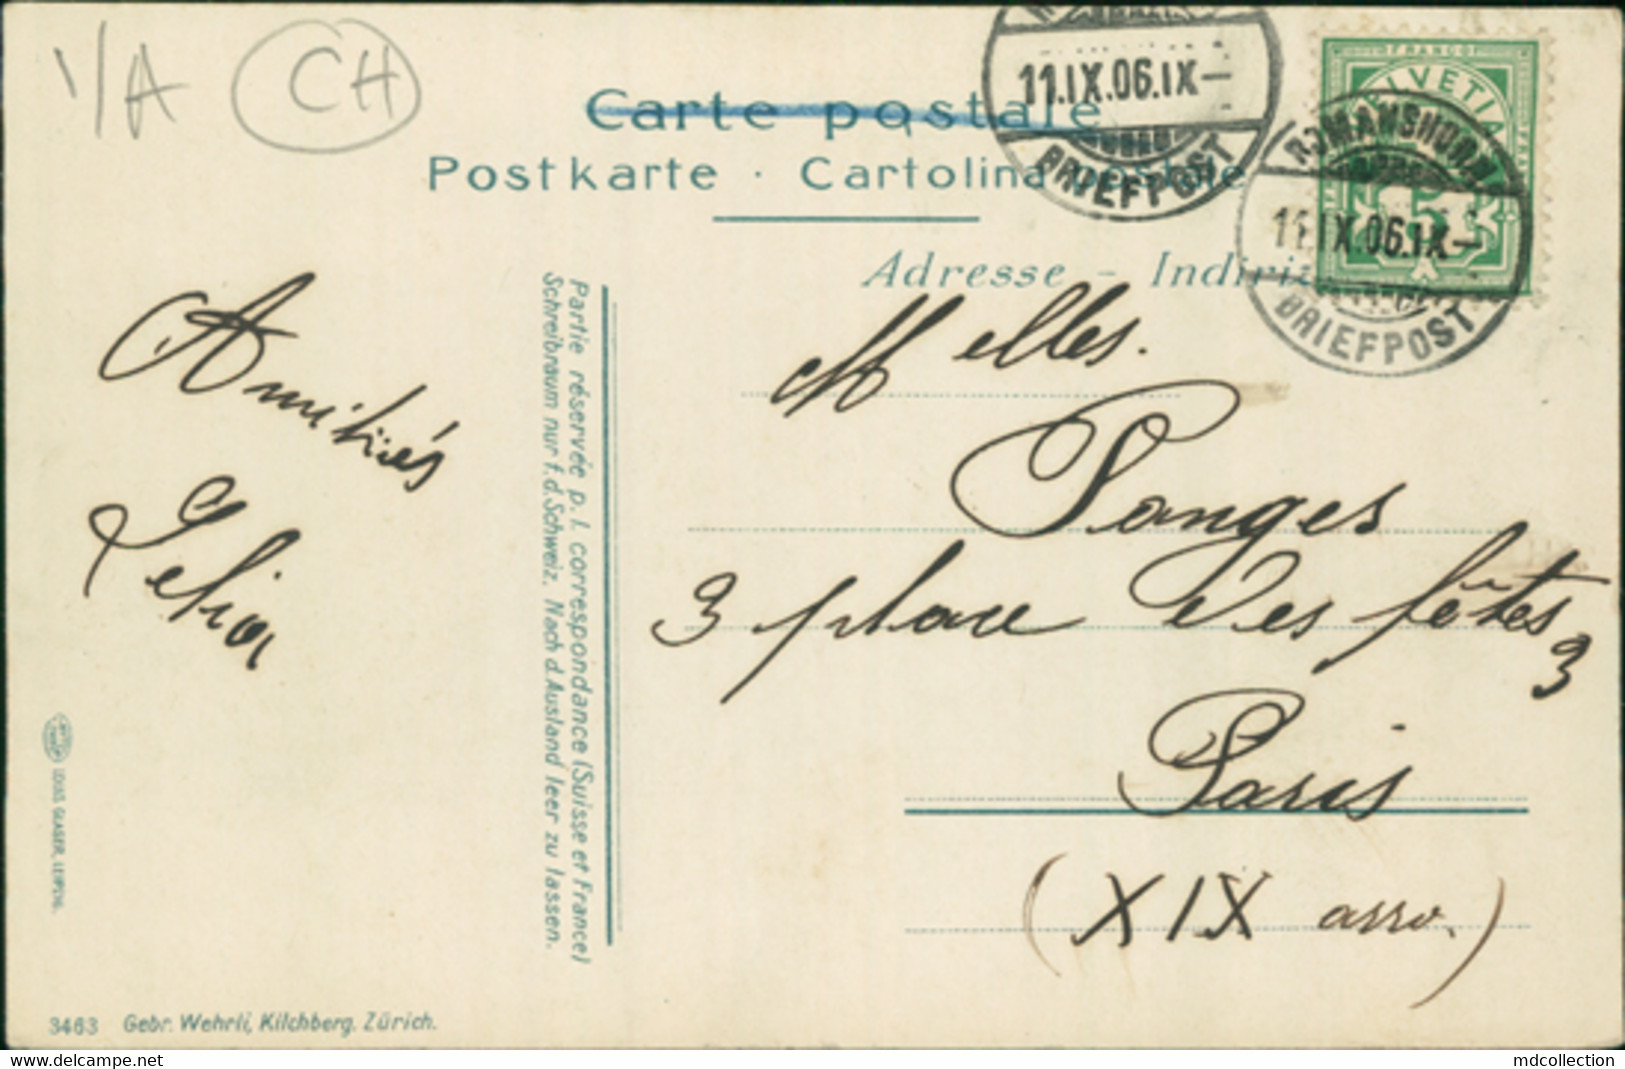 1/A CH
Carte postale
Postkarte · Cartolina postale
Adresse - Indiriz
11.IX.06.IX-
BRIEFPOST
FRANCO
HELVETIA
5
ROMANSHORN
11.IX.06.IX-
BRIEFPOST
Amitiés
Melles.
Ponges
3 place des fêtes 3
Paris
(XIX arro.)
Partie réservée p. l. correspondance (Suisse et France)
Schreibraum nur f. d. Schweiz. Nach d. Ausland leer zu lassen.
LOUIS GLASER, LEIPZIG.
3463 Gebr. Wehrli, Kilchberg. Zürich.
delcampe.net
mdcollection